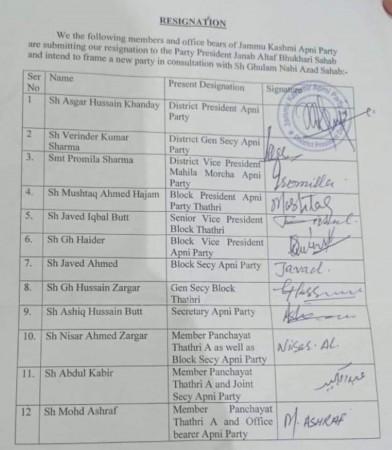 RESIGNATION
We the following members and office bears of Jammu Kashmi Apni Party
are submitting our resignation to the Party President Janab Altaf Bhukhari Sahab
and intend to frame a new party in consultation with Sh Ghulam Nabi Azad Sahab:-
Ser No Name Present Designation Signature
1 Sh Asgar Hussain Khanday District President Apni
Party
2 Sh Verinder Kumar District Gen Secy Apni
Sharma Party
3. Smt Promila Sharma District Vice President
Mahila Morcha Apni
Party
4. Sh Mushtaq Ahmed Hajam Block President Apni
Party Thathri Mushtaq
5. Sh Javed Iqbal Butt Senior Vice President
Block Thathri
6. Sh Gh Haider Block Vice President
Apni Party
7. Sh Javed Ahmed Block Secy Apni Party Javad
8. Sh Gh Hussain Zargar Gen Secy Block
Thathri
9. Sh Ashiq Hussain Butt Secretary Apni Party
10. Sh Nisar Ahmed Zargar Member Panchayat
Thathri A as well as
Block Secy Apni Party
11. Sh Abdul Kabir Member Panchayat
Thathri A and Joint
Secy Apni Party
12 Sh Mohd Ashraf Member Panchayat
Thathri A and Office M. ASHRAF
bearer Apni Party